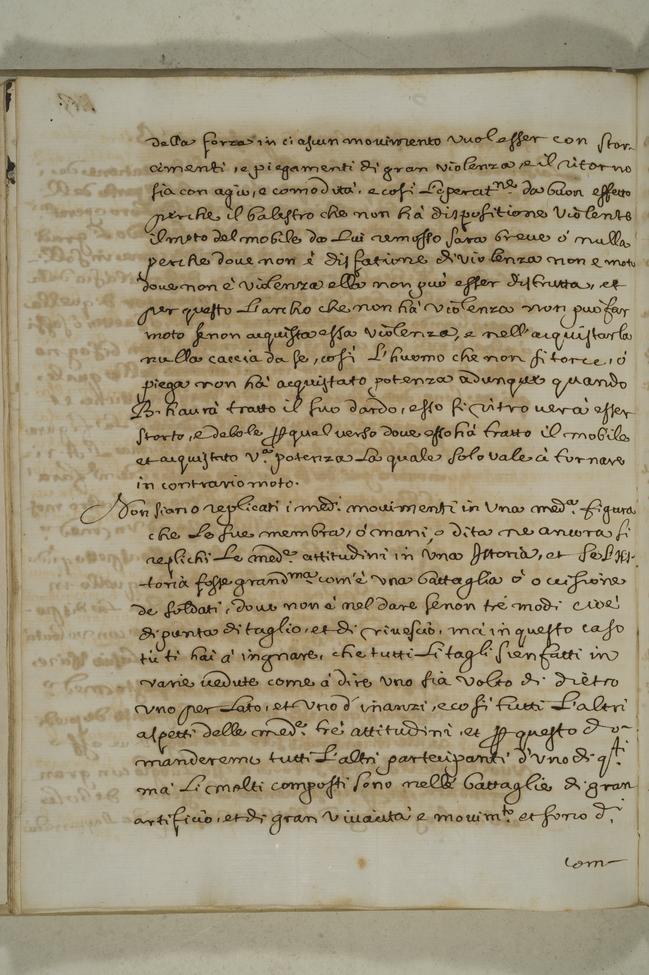 della forza in ciascun movimento vuol esser con stor-
cimenti, e piegamenti di gran violenza, e il ritorno
sia con agio, e comodità, e cosi l'operatne da buon effetto
perche il balestro che non hà dispositione violente
il moto del mobile da lui remosso sara breve ò nulla
perche dove non è disfatione di violenza non e moto
dove non è violenza ella non può esser distrutta, et
per questo l'archo che non hà violenza non può far
moto se non acquista essa violenza, e nell'acquistarla
nulla caccia da se, cosi l'huomo che non si torce, ò
piega non hà acquistato potenza adunque quando
B. haurà tratto il suo dardo, esso si ritroverà esser
storto, e debole p quel verso dove esso hà tratto il mobile
et acquistato va potenza la quale solo vale à tornare
in contrario moto.
Non siano replicati i med. movimenti in una meda figura
che le sue membra, ò mani, o dita ne ancora si
replichi le mede attitudini in una Istoria, et se l'His-
toria fosse grandma com'è una battaglia ò occisione
de soldati, dove non è nel dare se non trè modi cioè
di punta di taglio, et di rivescio, mà in questo caso
tù ti hai à ingnare, che tutti li tagli sien fatti in
varie vedute come à dire uno sia volto di dietro
uno per lato, et uno d'inanzi, e cosi tutti l'altri
aspetti delle mede trè attitudini, et p questo do-
manderemo tutti l'altri partecipanti d'uno di qsti
mà li molti composti sono nelle battaglie di gran
artificio, et di gran vivacità e movimto et sono di
com-